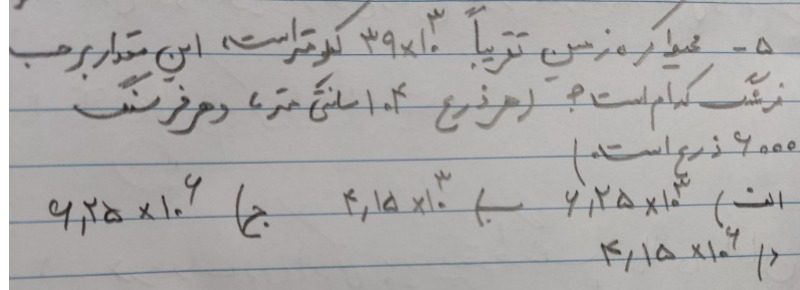 ۵- محیط کره زمین تقریباً ۳۹×۱۰^۳ کیلومتر است، این مقدار برحسب
فرسنگ کدام است؟ (هر ذرع ۱۰۴ سانتی متر، و هر فرسنگ
۶۰۰۰ ذرع است.)
الف) ۶,۲۵×۱۰^۳ ب) ۴,۱۵×۱۰^۳ ج) ۶,۲۵×۱۰^۶
د) ۴,۱۵×۱۰^۶